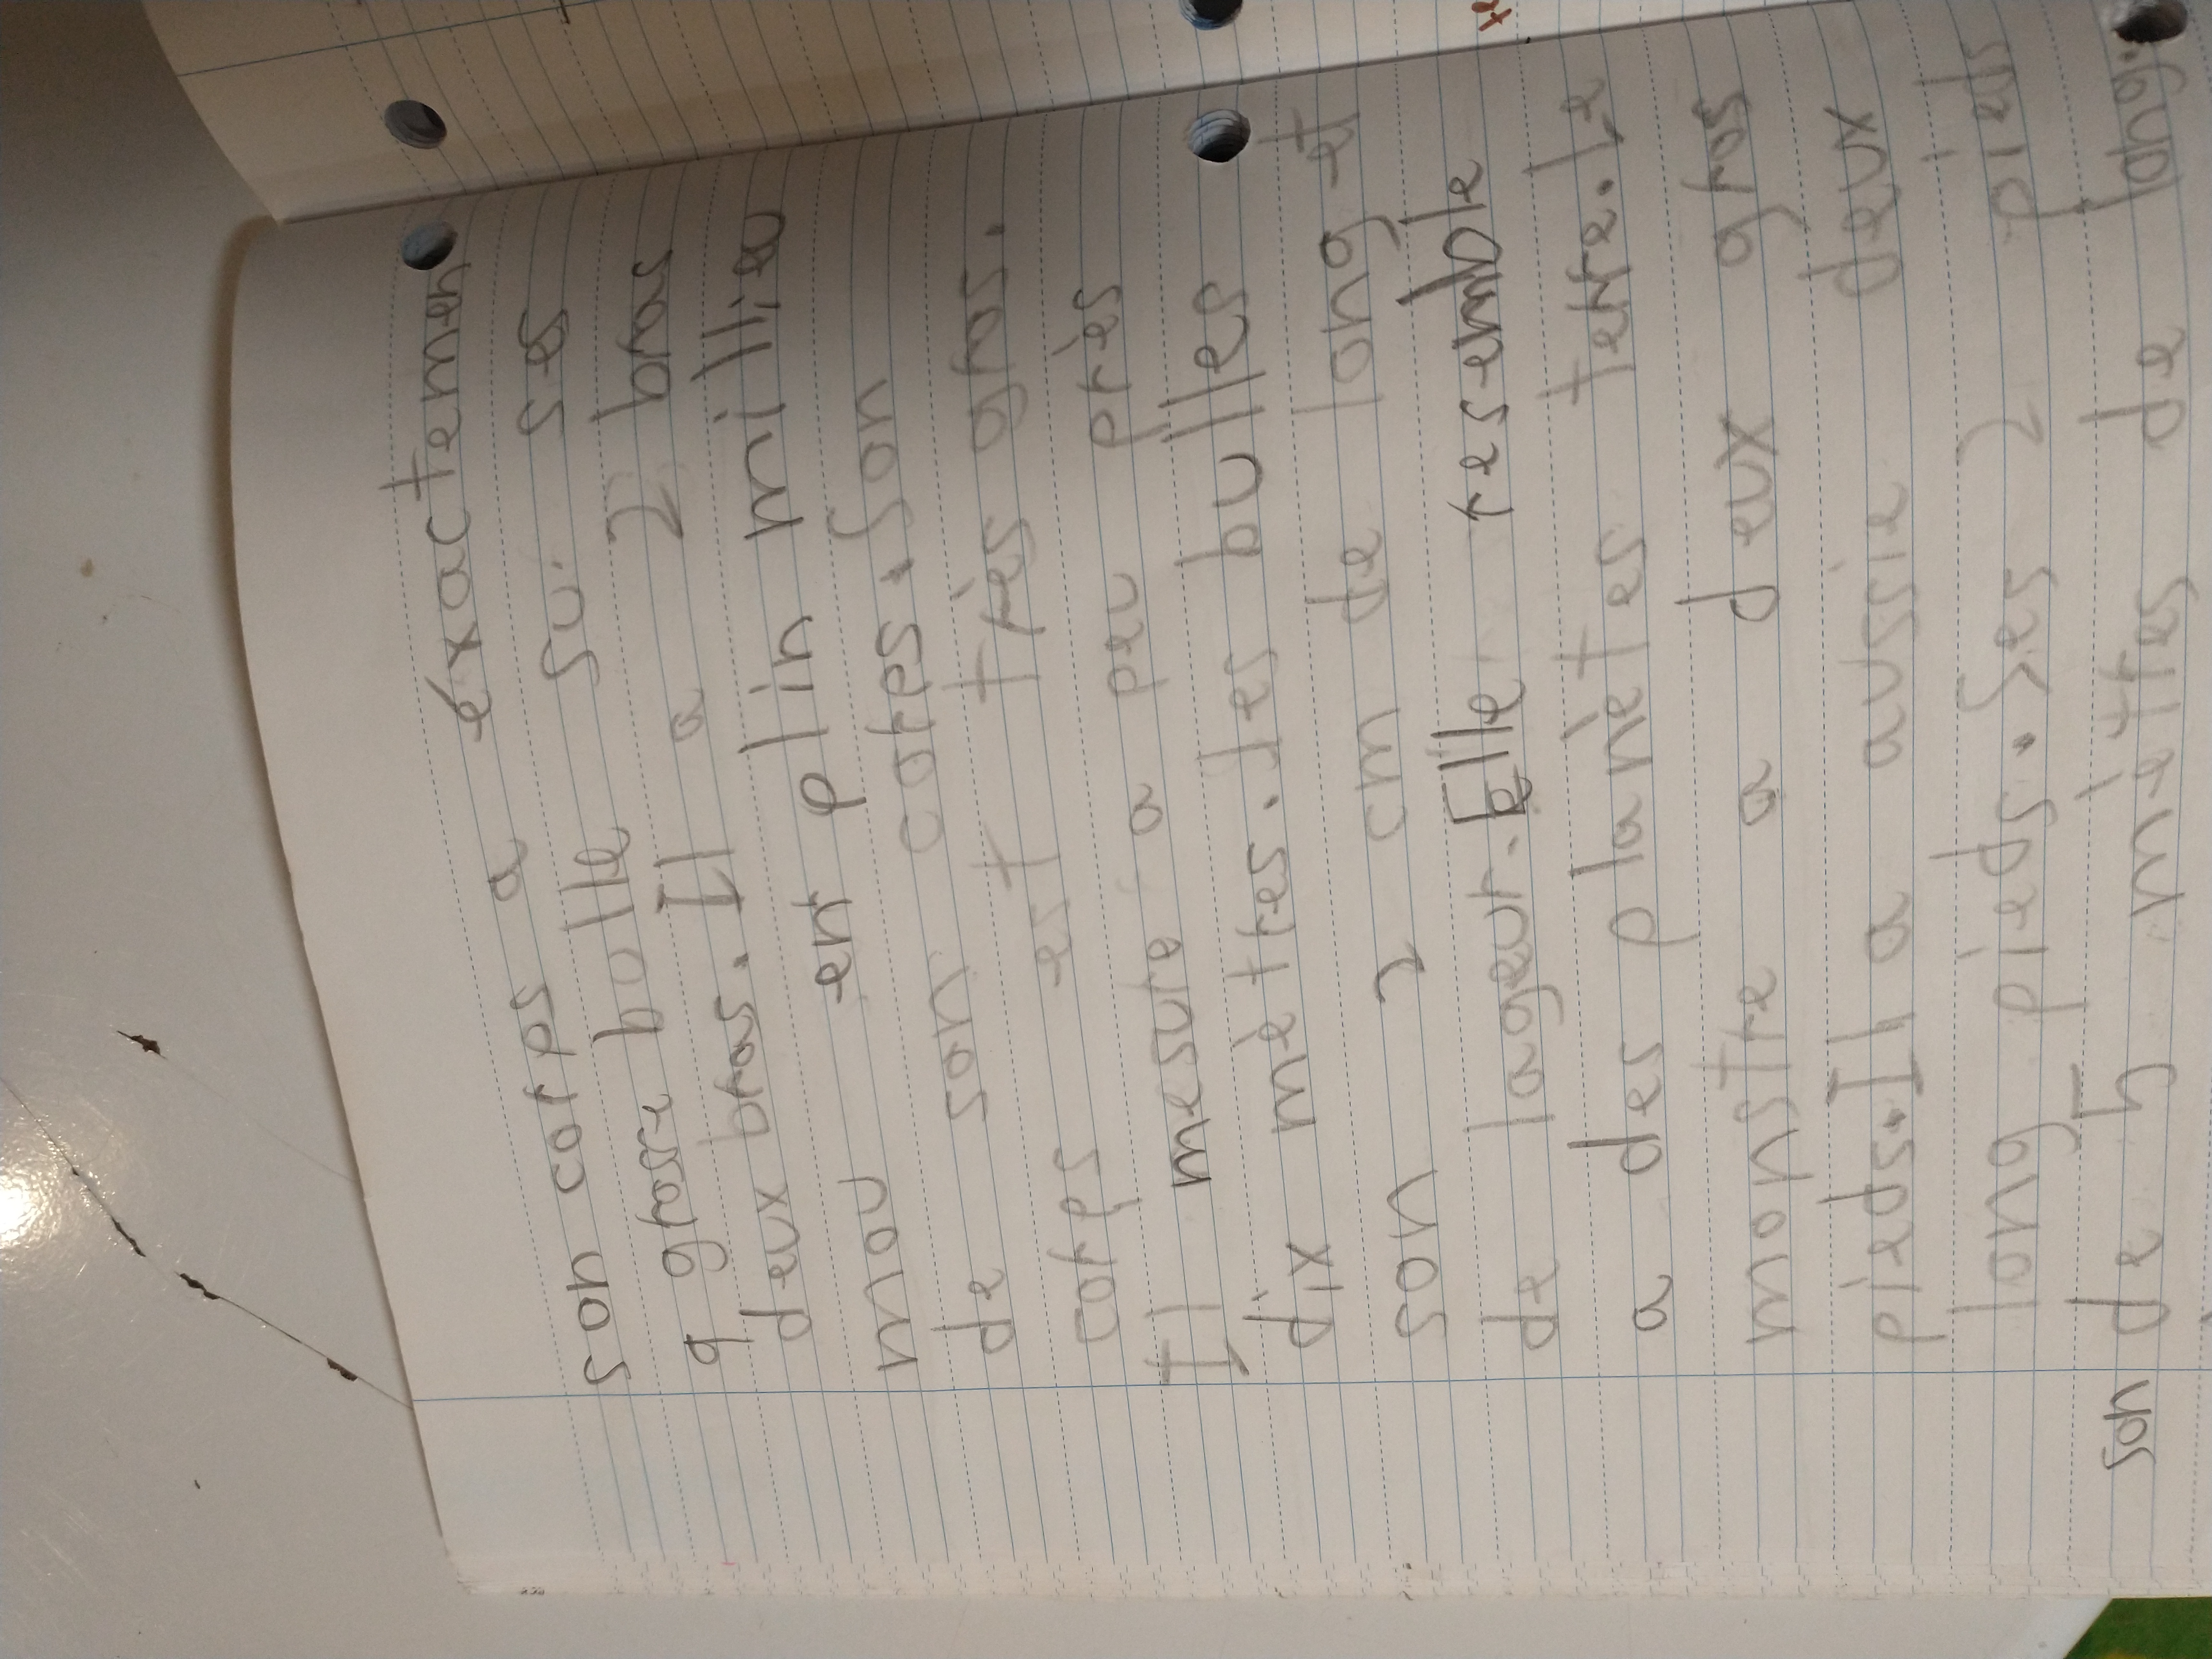 son corps a éxactemen
9 grosse bulle su ses
deux bras. Il a 2 bras
mou en plin millieu
de son corps. Son
corps est très gros.
Il mesure a peu près
dix mèttres. Les bulles
son 2 cm de long et
de lageur. Elle resemble
a des planètes terre. Le
monstre a deux gros
pieds. Il a aussie deux
long pieds. Ses 2 pieds
son de 5 mèttres de long.